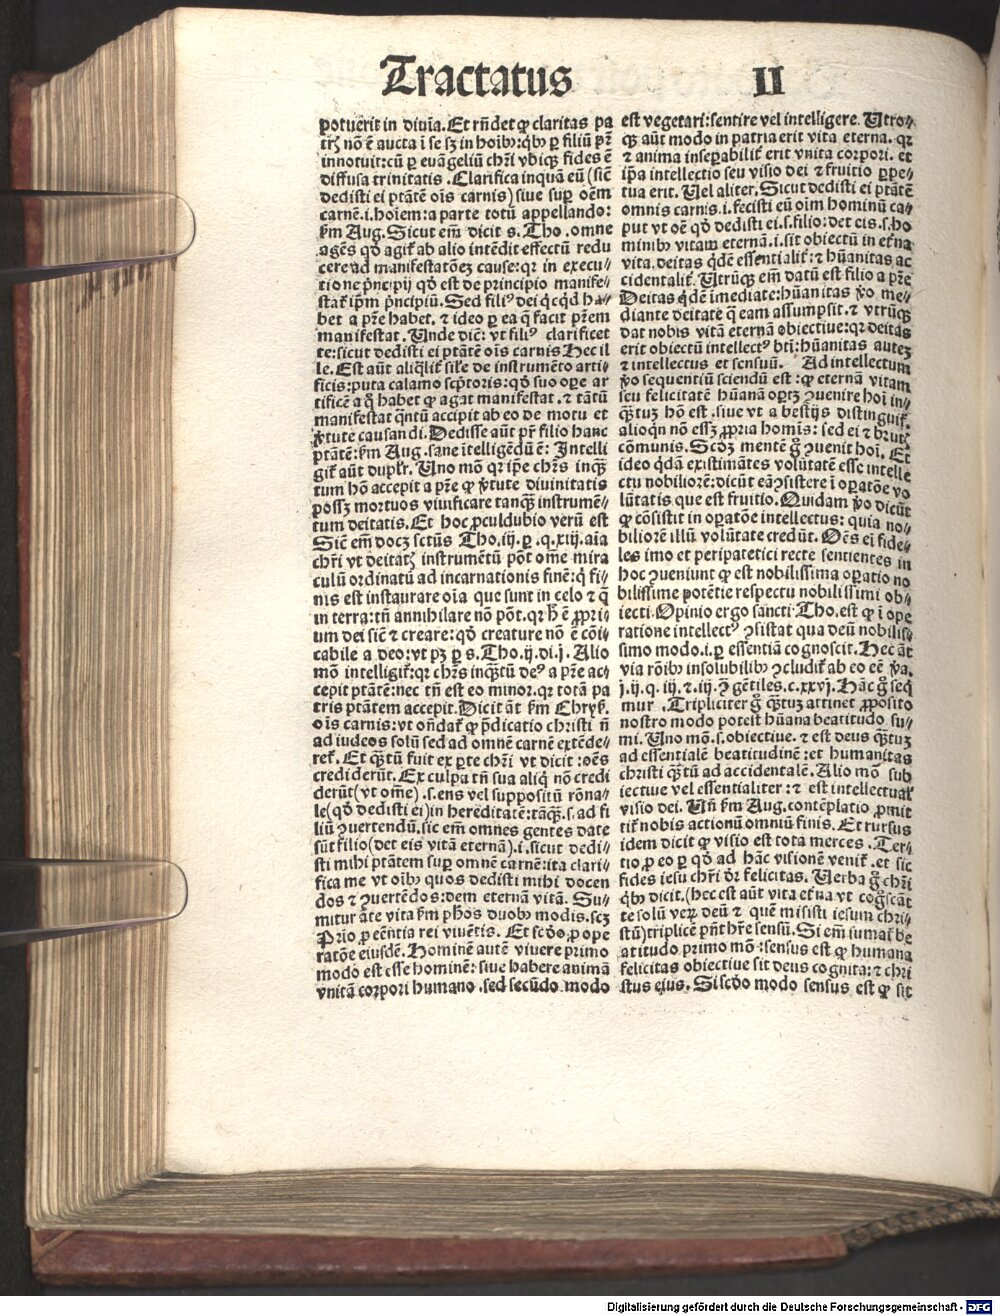 Tractatus II
potuerit in diuīa. Et rñdet ꝙ claritas pa
trꝫ nō ē aucta ī se sꝫ in hoībꝰ: qbꝰ ꝑ filiū pr̄z
innotuit: cū ꝑ euāgeliū chr̄i vbiqꝫ fides ē
diffusa trinitatis. Clarifica inquā eū (sic̄
dedisti ei ptātē oīs carnis) siue suꝑ oēm
carnē .i. hoīem: a parte totū appellando:
km̄ Aug. Sicut em̄ dicit s. Tho. omne
agēs qd̄ agit᷑ ab alio intēdit effectū redu
cere ad manifestatōeꝫ cause: qꝛ in execu⸗
tione pncipij qd̄ est de principio manife⸗
stat᷑ ip̄m pncipiū. Sed filiꝰ dei qcqd ha⸗
bet a pr̄e habet. ⁊ ideo ꝑ ea q̄ facit pr̄em
manifestat. Unde dic̄: vt filiꝰ clarificet
te: sicut dedisti ei ptātē oīs carnis Hec il
le. Est aūt aliq̄lit᷑ sil̄e de instrumēto arti⸗
ficis: puta calamo scp̄toris: qd̄ suo oꝑe ar
tificē a q̄ habet ꝙ agat manifestat. ⁊ tātū
manifestat qntū accipit ab eo de motu et
v̓tute causandi. Dedisse aūt pr̄ filio hanc
ptātē: km̄ Aug. sane ītelligēdū ē: Intelli
git᷑ aūt dupl̄r. Uno mō qꝛ ip̄e chr̄s inqꝫ̄
tum hō accepit a pr̄e ꝙ v̓tute diuinitatis
possꝫ mortuos viuificare tanqꝫ̄ instrumē⸗
tum deitatis. Et hoc ꝓculdubio verū est
Sic̄ em̄ docꝫ sctūs Tho. iij. ꝑ. q. xiij. aīa
chr̄i vt deitatꝫ instrumētū pōt om̄e mira
culū ordinatū ad incarnationis finē: q̓ fi⸗
nis est instaurare oīa que sunt in celo ⁊ q̄
in terra: tn̄ annihilare nō pōt. qꝛ h̄ ē ꝓpri
um dei sic̄ ⁊ creare: qd̄ creature nō ē cōi
cabile a deo: vt pꝫ ꝑ s. Tho. ij. di. j. Alio
mō intelligit᷑: qꝛ chr̄s inqꝫ̄tū deꝰ a pr̄e ac⸗
cepit ptātē: nec tn̄ est eo minor. qꝛ totā pa
tris ptātem accepit. Dicit āt km̄ Chryſ.
oīs carnis: vt on̄dat᷑ ꝙ p̄dicatio christi n̄
ad iudeos solū sed ad omnē carnē extēde⸗
ret᷑. Et qꝫ̄tū fuit ex ꝑte chr̄i vt dicit: oēs
crediderūt. Ex culpa tn̄ sua aliq̓ nō credi
derūt (vt om̄e) .s. ens vel suppositū rōna⸗
le (qd̄ dedisti ei) in hereditatē: tāqꝫ̄ .s. ad fi
liū ꝯuertendū. sic em̄ omnes gentes date
sūt filio (det eis vitā eternā) .i. sicut dedi⸗
sti mihi ptātem suꝑ omnē carnē: ita clari⸗
fica me vt oībꝰ quos dedisti mihi docen
dos ⁊ ꝯuertēdos: dem eternā vitā. Su⸗
mitur āte vita km̄ ph̄os duobꝰ modis. scꝫ
Prīo ꝓ eēntia rei viuētis. Et scd̄o ꝓ ope
ratōe eiusdē. Hominē autē viuere primo
modo est esse hominē: siue habere animā
vnitā corpori humano. sed secūdo modo
est vegetari: sentire vel intelligere. Utro⸗
qꝫ aūt modo in patria erit vita eterna. qꝛ
⁊ anima insepabilit᷑ erit vnita corpori. et
ip̄a intellectio seu visio dei ⁊ fruitio ꝑpe⸗
tua erit. Uel aliter. Sicut dedisti ei ptātē
omnis carnis .i. fecisti eū oīm hominū ca⸗
put vt oē qd̄ dedisti ei .s. filio: det eis .s. ho
minibꝰ vitam eternā .i. sit obiectū in et̄na
vita. deitas qdē essentialit᷑: ⁊ hūanitas ac
cidentalit᷑. Utrūqꝫ em̄ datū est filio a pr̄e
Deitas qdē imediate: hūanitas v̓o me⸗
diante deitate q̄ eam assumpsit. ⁊ vtrūqꝫ
dat nobis vitā eternā obiectiue: qꝛ deitas
erit obiectū intellectꝰ btī: hūanitas autez
⁊ intellectus et sensuū. Ad intellectum
v̓o sequentiū sciendū est: ꝙ eternā vitam
seu felicitatē hūanā oportꝫ ꝯuenire hoī in⸗
qꝫ̄tuꝫ hō est. siue vt a bestijs distinguit᷑.
alioqn nō essꝫ ꝓpria homīs: sed ei ⁊ brutꝭ
cōmunis. Scd̄ꝫ mentē g̊ ꝯuenit hoī. Et
ideo qdā existimātes volūtatē esse intelle
ctu nobiliorē: dicūt eā ꝯsistere ī oꝑatōe vo
lūtatis que est fruitio. Quidam v̓o dicūt
ꝙ cōsistit in oꝑatōe intellectus: quia no⸗
biliorē illū volūtate credūt. Oēs em̄ fide⸗
les imo et peripatetici recte sentientes in
hoc ꝯueniunt ꝙ est nobilissima oꝑatio no
bilissime potētie respectu nobilissimi ob⸗
iecti. Opinio ergo sancti Tho. est ꝙ ī ope
ratione intellectꝰ ꝯsistat qua deū nobilis⸗
simo modo .i. ꝑ essentiā cognoscit. Hec āt
via rōībꝰ insolubilibꝰ ꝯcludit᷑ ab eo eē v̓a.
j. ij. q. iij. ⁊. iij. ꝯ̄ gētiles. c. xxvj. Hāc g̊ seq̄
mur. Tripliciter g̊ qꝫ̄tuꝫ attinet ꝓposito
nostro modo poteit hūana beatitudo su⸗
mi. Uno mō .s. obiectiue. ⁊ est deus qꝫ̄tuꝫ
ad essentialē beatitudinē: et humanitas
christi qꝫ̄tū ad accidentalē. Alio mō sub
iectiue vel essentialiter: ⁊ est intellectual̓
visio dei. Un̄ km̄ Aug. contēplatio ꝓmit
tit᷑ nobis actionū omniū finis. Et rursus
idem dicit ꝙ visio est tota merces. Ter⸗
tio ꝓ eo ꝑ qd̄ ad hāc visionē venit᷑. et sic
fides iesu chr̄i dr̄ felicitas. Uerba g̊ chr̄i
qbꝰ dicit. (hec est aūt vita et̄na vt cog̊scāt
te solū verꝫ deū ⁊ quē misisti iesum chri⸗
stū) triplicē pn̄t hr̄e sensū. Si em̄ sumat᷑ be
atitudo primo mō: sensus est ꝙ humana
felicitas obiectiue sit deus cognitꝰ: ⁊ chri
stus eius. Si scd̄o modo sensus est ꝙ sit
Digitalisierung gefördert durch die Deutsche Forschungsgemeinschaft - DFG